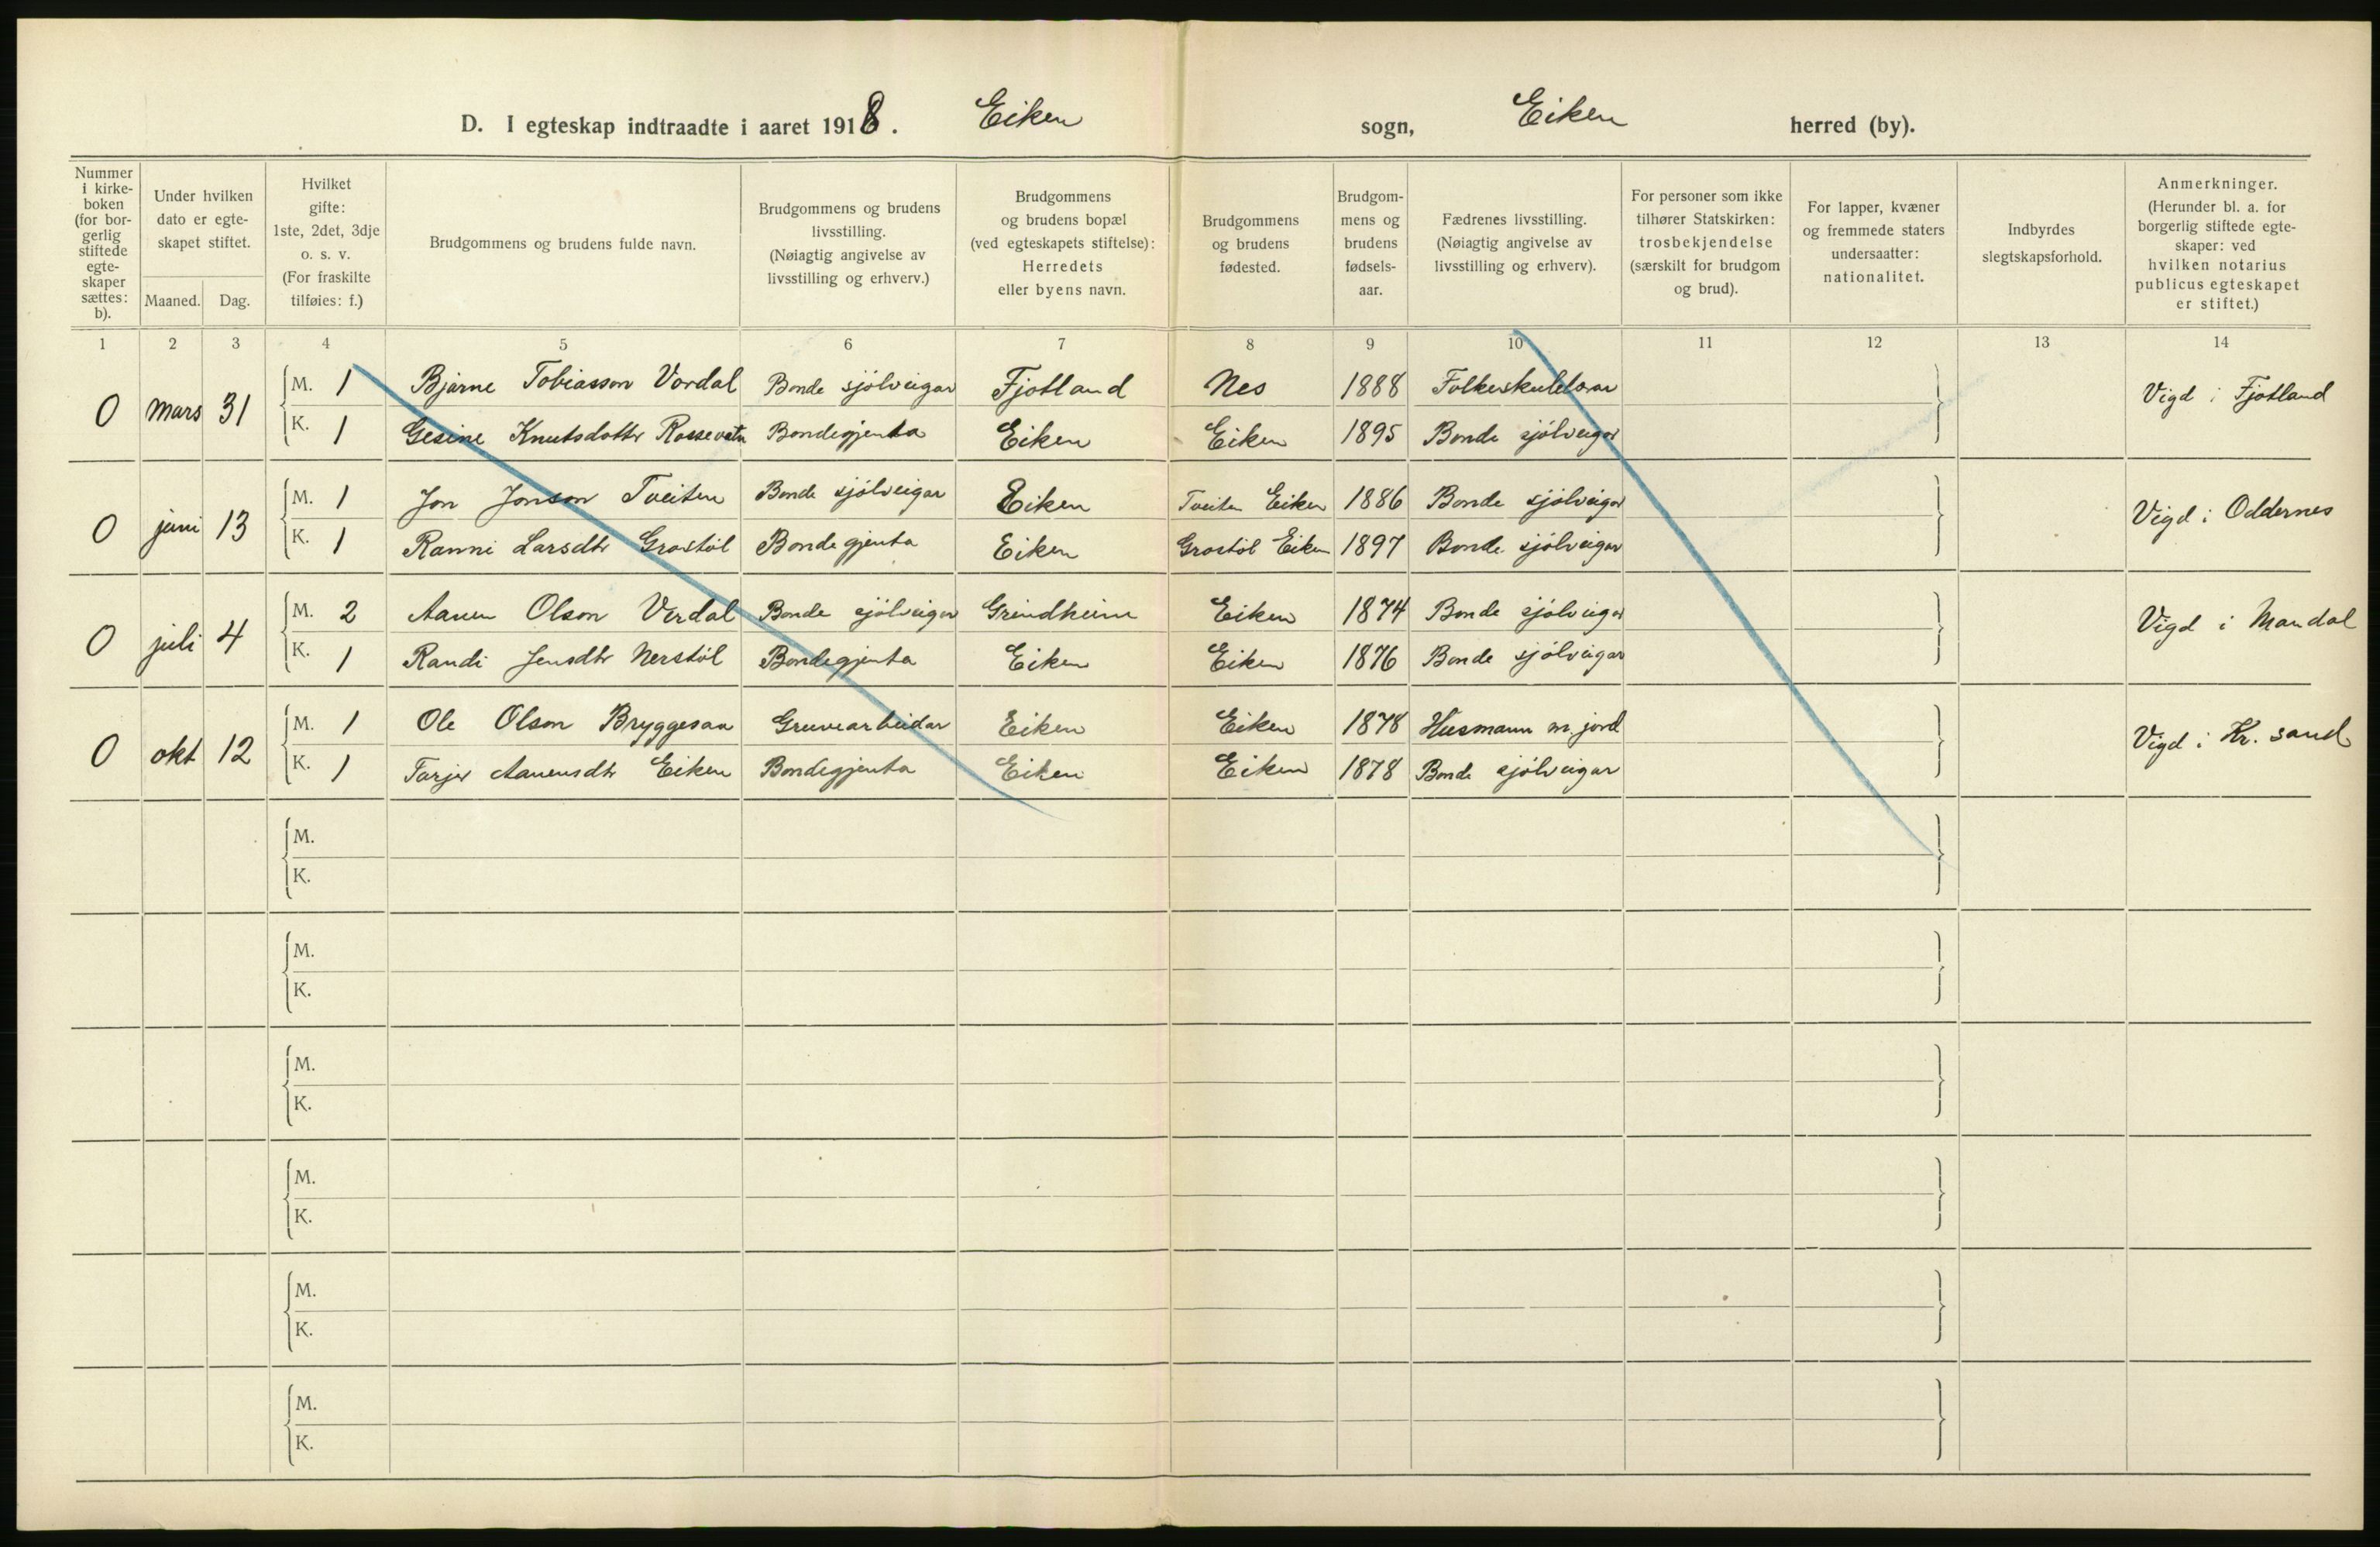 D. I egteskap indtraadte i aaret 1918. Eiken sogn, Eiken herred (by).
Nummer i kirkeboken (for borgerlig stiftede egteskaper sættes: b).
Under hvilken dato er egteskapet stiftet.
Maaned. Dag.
Hvilket gifte: 1ste, 2det, 3dje o. s. v. (For fraskilte tilføies: f.)
Brudgommens og brudens fulde navn.
Brudgommens og brudens livsstilling. (Nøiagtig angivelse av livsstilling og erhverv.)
Brudgommens og brudens bopæl (ved egteskapets stiftelse): Herredets eller byens navn.
Brudgommens og brudens fødested.
Brudgommens og brudens fødselsaar.
Fædrenes livsstilling. (Nøiagtig angivelse av livsstilling og erhverv).
For personer som ikke tilhører Statskirken: trosbekjendelse (særskilt for brudgom og brud).
For lapper, kvæner og fremmede staters undersaatter: nationalitet.
Indbyrdes slegtskapsforhold.
Anmerkninger. (Herunder bl. a. for borgerlig stiftede egteskaper: ved hvilken notarius publicus egteskapet er stiftet.)
1 2 3 4 5 6 7 8 9 10 11 12 13 14
0 mars 31 M. 1 Bjarne Tobiasson Vordal Bonde sjölveigar Fjotland Nes 1888 Folkeskulelærar Vigd i Fjotland
K. 1 Gesine Knutsdotter Rossevatn Bondegjenta Eiken Eiken 1895 Bonde sjölveigar
0 juni 13 M. 1 Jon Jonson Tveiten Bonde sjölveigar Eiken Tveiten Eiken 1886 Bonde sjölveigar Vigd i Oddernes
K. 1 Ranni Larsdtr Grostöl Bondegjenta Eiken Grostöl Eiken 1897 Bonde sjölveigar
0 juli 4 M. 2 Aanen Olson Verdal Bonde sjölveigar Grindheim Eiken 1874 Bonde sjölveigar Vigd i Mandal
K. 1 Randi Jensdtr Nerstöl Bondegjenta Eiken Eiken 1876 Bonde sjölveigar
0 okt 12 M. 1 Ole Olson Bryggesaa Gruvearbeidar Eiken Eiken 1878 Husmann m. jord Vigd i Kr. sand
K. 1 Tarjer Aanensdtr Eiken Bondegjenta Eiken Eiken 1878 Bonde sjölveigar
M.
K.
M.
K.
M.
K.
M.
K.
M.
K.
M.
K.